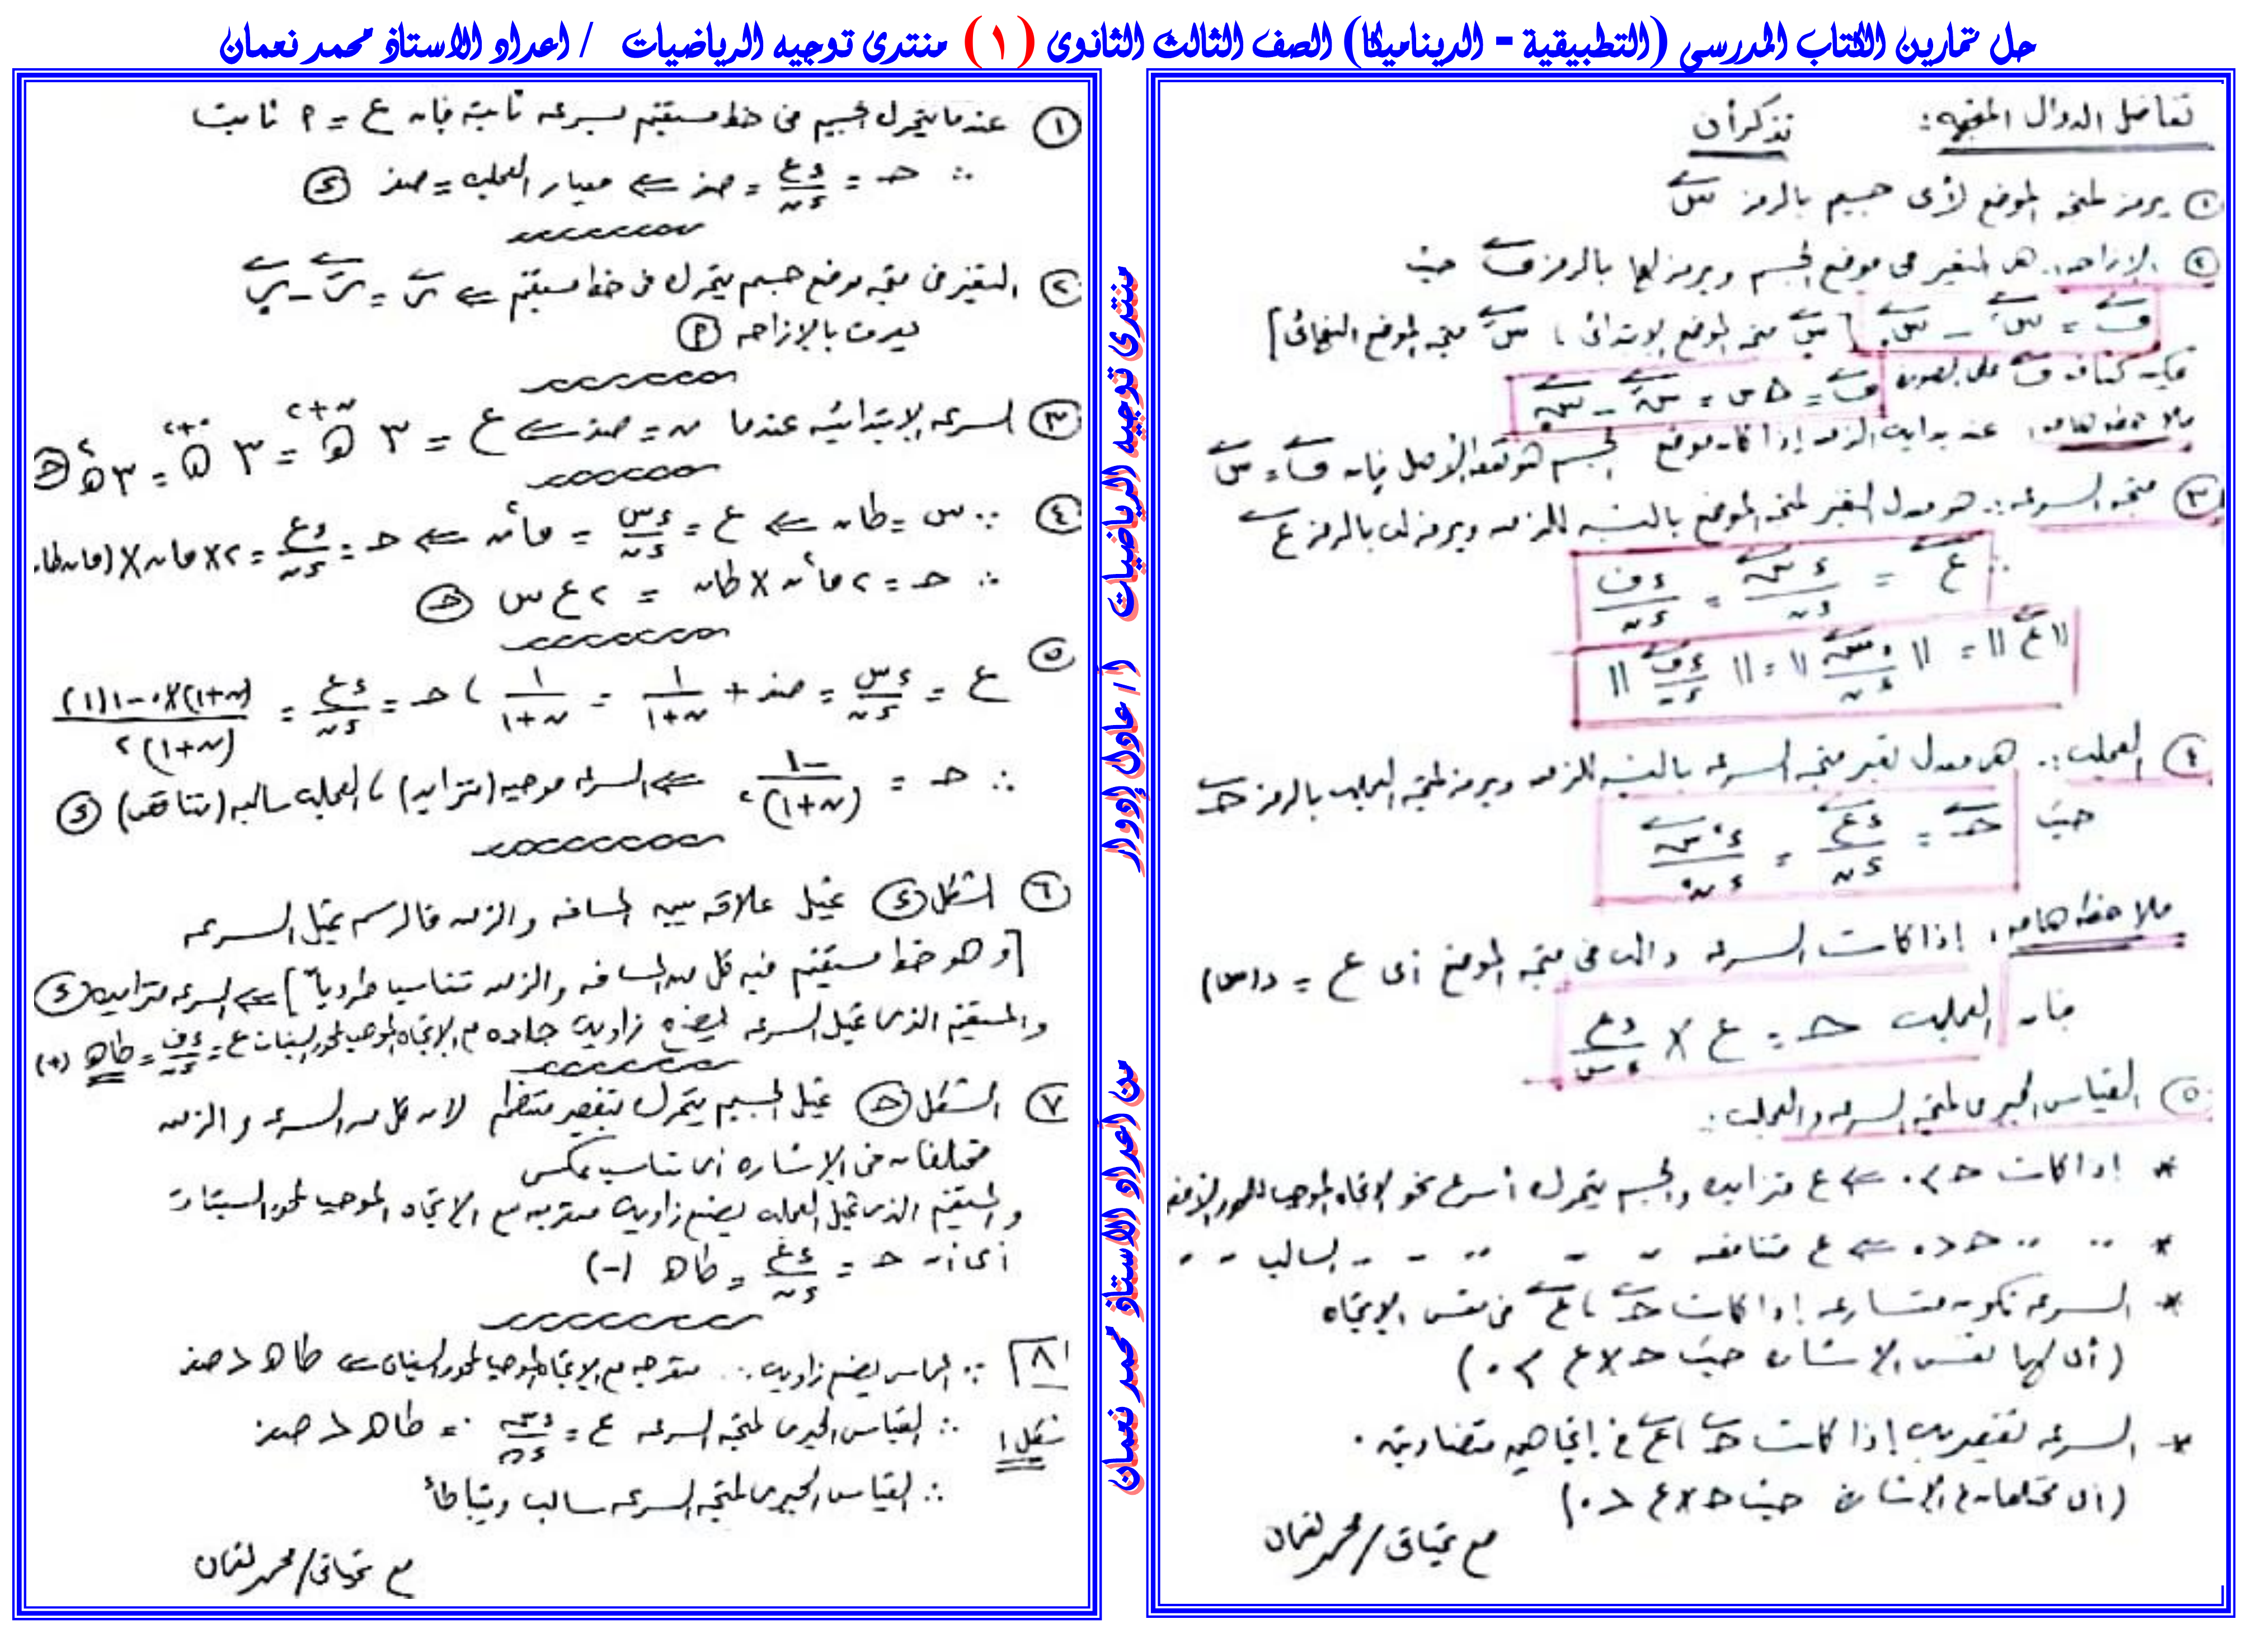 حل تمارين الكتاب المدرسى (التطبيقية - الديناميكا) الصف الثالث الثانوى (١) منتدى توجيه الرياضيات / اعداد الاستاذ محمد نعمان
تفاضل الدوال المتجهه: تذكر أن
① يرمز لمتجه الموضع لأى جسيم بالرمز س
② الإزاحه: هى التغير فى موضع الجسم ويرمز لها بالرمز ف حيث
ف = س - س. [س. متجه الموضع الابتدائى ، س متجه الموضع النهائى]
ويمكن كتابة ف على الصورة ف = Δ س = س - س.
ملاحظه هامه: عند بداية الزمن إذا كان موضع الجسم هو نقطه الأصل فإن ف = س
③ متجه السرعه: هو معدل التغير لمتجه الموضع بالنسبه للزمن ويرمز له بالرمز ع
∴ ع = ءس/ءن = ءف/ءن
||ع|| = ||ءس/ءن|| = ||ءف/ءن||
④ العجله: هى معدل تغير متجه السرعه بالنسبه للزمن ويرمز لمتجه العجله بالرمز حـ
حيث حـ = ءع/ءن = ء²س/ءن²
ملاحظه هامه: إذا كانت السرعه داله فى متجه الموضع أى ع = د(س)
فإن العجله حـ = ع × ءع/ءس
⑤ القياس الجبرى لمتجه السرعه والعجله:
* إذا كانت حـ > ٠ ⇐ ع متزايده والجسم يتحرك أسرع نحو الاتجاه الموجب للمحور الأفقى
* ،، ،، حـ < ٠ ⇐ ع متناقصه ،، ،، ،، ،، السالب ،، ،،
* السرعه تكون متسارعه إذا كانت حـ ، ع فى نفس الاتجاه
(أى لهما نفس الإشاره حيث حـ × ع > ٠)
* السرعه تقصيريه إذا كانت حـ ، ع فى إتجاهين متضادين.
(أى مختلفان فى الإشارة حيث حـ × ع < ٠)
مع تحياتى / محمد نعمان
منتدى توجيه الرياضيات
أ / عاول إوواr
من أعداو الاستاذ محمد نعمان
① عندما يتحرك الجسيم فى خط مستقيم بسرعه ثابته فإن ع = م ثابت
∴ حـ = ءع/ءن = صفر ⇐ معيار العجله = صفر ⓢ
② التغير فى متجه موضع جسيم يتحرك فى خط مستقيم ⇐ س = س - س.
يعرف بالإزاحه (م)
③ السرعه الإبتدائيه عندما ن = صفر ⇐ ع = ٣ هـ^(ن+٢) = ٣ هـ^(٠+٢) = ٣هـ² (حـ)
④ ∵ س = طان ⇐ ع = ءس/ءن = قا²ن ⇐ حـ = ءع/ءن = ٢ × قان × (قان طان
∴ حـ = ٢ قا²ن × طان = ٢ ع س (حـ)
⑤ ع = ءس/ءن = صفر + ١/(ن+١) = ١/(ن+١) ، حـ = ءع/ءن = ((ن+١)×٠ - ١(١))/(ن+١)²
∴ حـ = -١/(ن+١)² ⇐ السرعه موجبه (تتزايد) ، العجله سالبه (تتناقص) (ء)
⑥ الشكل (ء) يمثل علاقه بين المسافه والزمن فالرسم يمثل السرعه
[وهو خط مستقيم فيه كل من المسافه والزمن تتناسبا طردياً] ⇐ السرعه متزايده (ء)
والمستقيم الذى يمثل السرعه يصنع زاويه حاده مع الإتجاه الموجب لمحور السينات ع = ءف/ءن = طا هـ (+)
⑦ الشكل (حـ) يمثل الجسيم يتحرك بتقصير منتظم لان كل من السرعه والزمن
مختلفان فى الإشاره أى تناسب عكسى
والمستقيم الذى يمثل العجله يصنع زاويه منفرجه مع الإتجاه الموجب لمحور السينات
أى أن حـ = ءع/ءن = طا هـ (-)
٨ ∵ المماس يصنع زاويه منفرجه مع الإتجاه الموجب لمحور السينات ⇐ طا هـ < صفر
شكل ١ ∴ القياس الجبرى لمتجه السرعه ع = ءس/ءن = طا هـ < صفر
∴ القياس الجبرى لمتجه السرعه سالب ويتباطأ
مع تحياتى / محمد نعمان